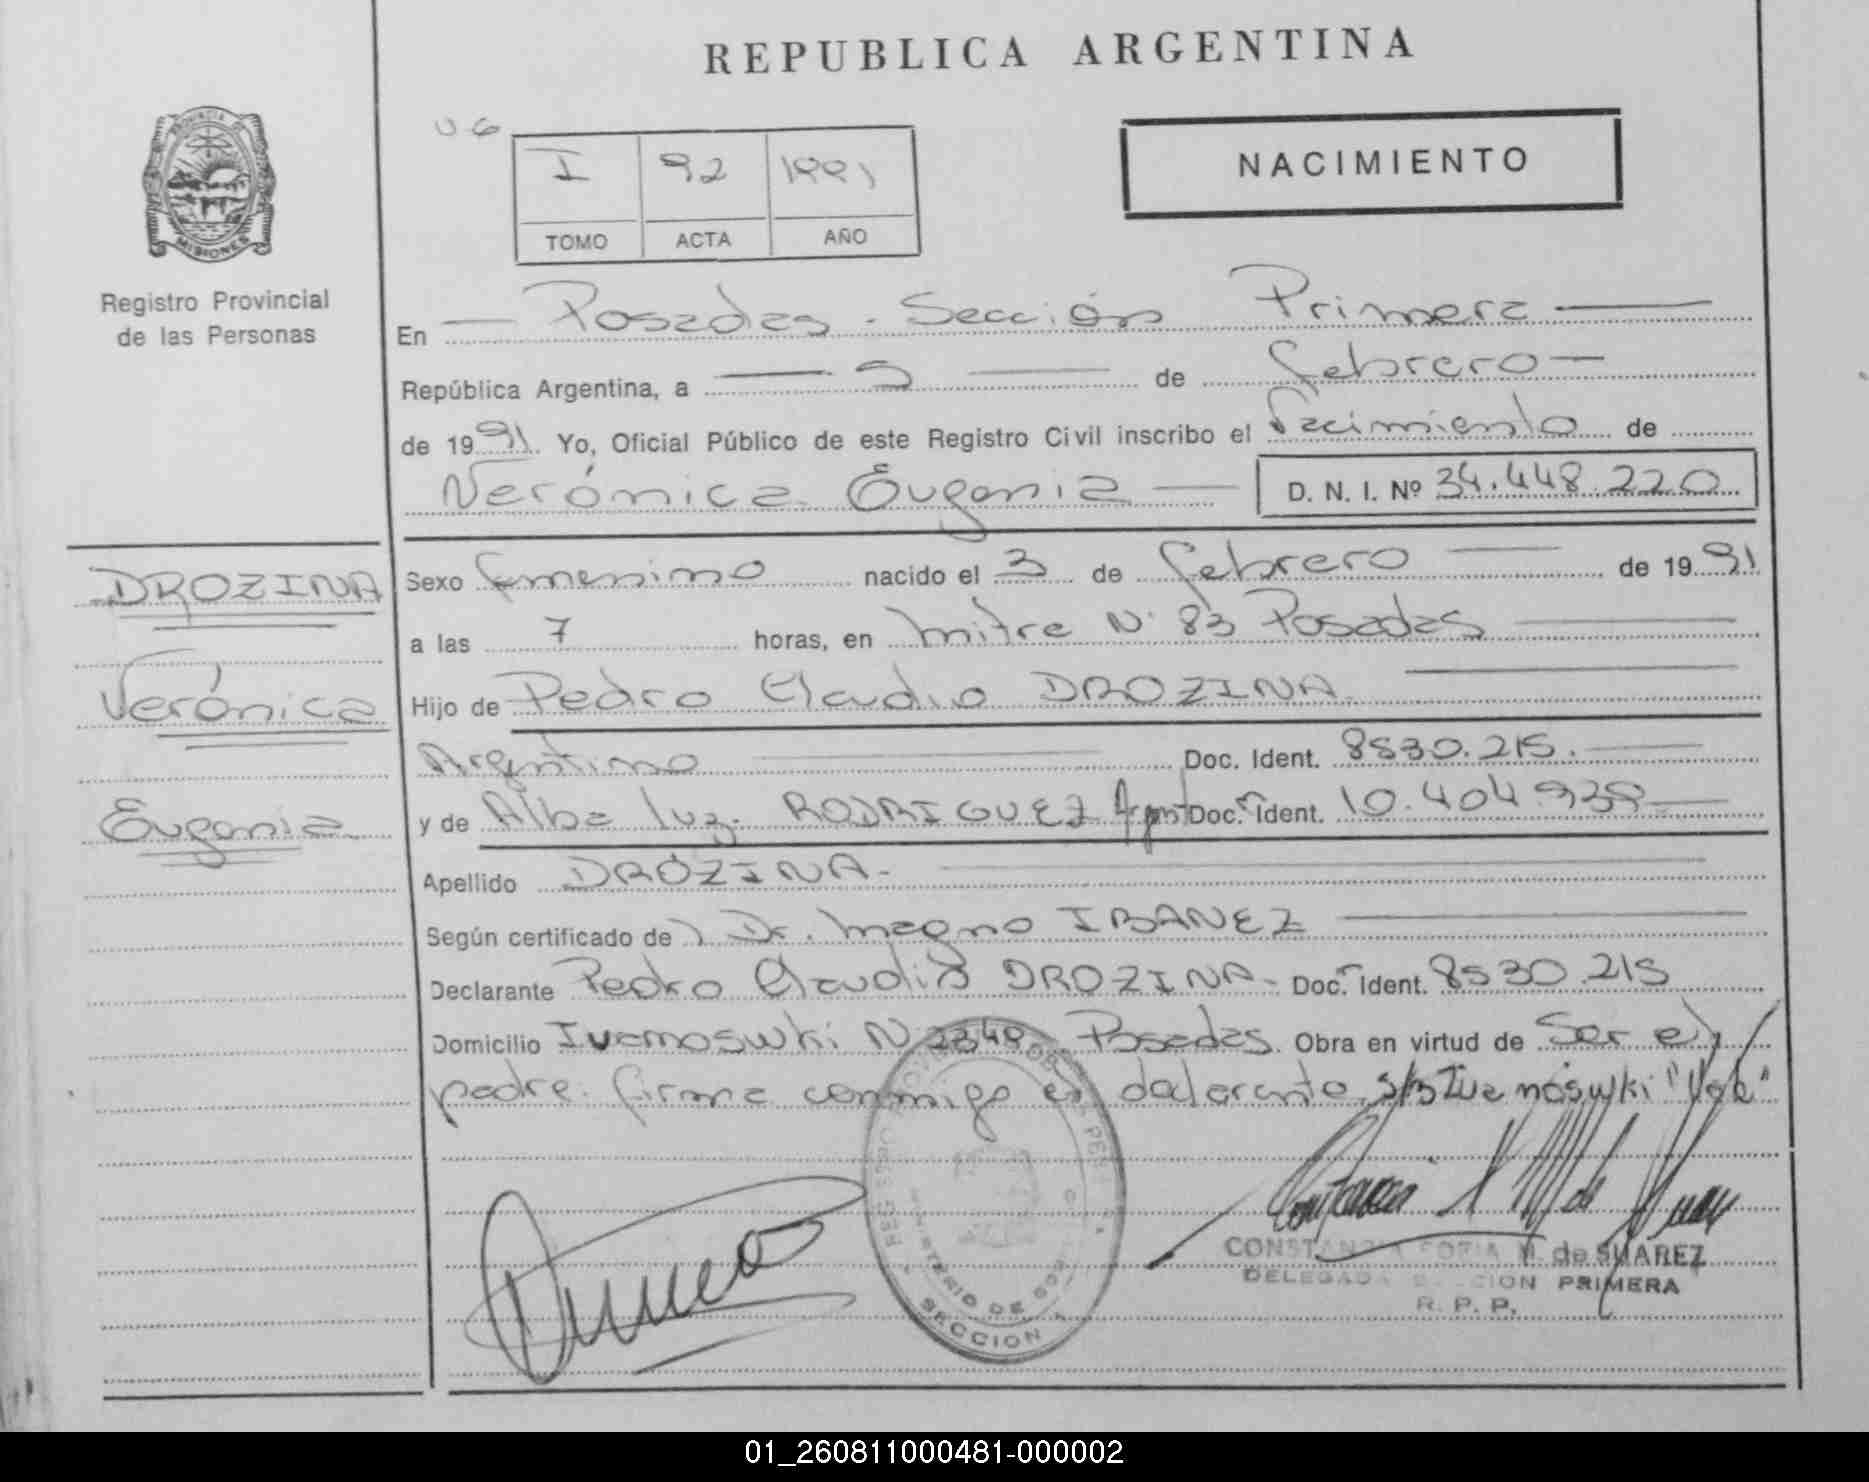 REPUBLICA ARGENTINA
PROVINCIA DE
MISIONES
Registro Provincial
de las Personas
I 92 1991
TOMO ACTA AÑO
NACIMIENTO
En Posadas - Sección Primera
República Argentina, a 5 de febrero
de 1991 Yo, Oficial Público de este Registro Civil inscribo el Nacimiento de
Verónica Eugenia D. N. I. Nº 34.448.220
DROZINA
Verónica
Eugenia
Sexo femenino nacido el 3 de febrero de 1991
a las 7 horas, en Mitre N° 83 Posadas
Hijo de Pedro Claudio DROZINA
Argentino Doc. Ident. 8530.215.
y de Alba Luz RODRIGUEZ Doc. Ident. 10.404.938
Apellido DROZINA.
Según certificado de Dr. Magno IBAÑEZ
Declarante Pedro Claudio DROZINA - Doc. Ident. 8530.215
Domicilio Ivanoswki N 2348 Posadas. Obra en virtud de Ser el
padre. firma conmigo el declarante. S/B Ivanoswki "Vale"
MINISTERIO DE GOBIERNO
SECCION 1
CONSTANCIA SOFIA M. de SUAREZ
DELEGADA SECCION PRIMERA
R. P. P.
01_260811000481-000002